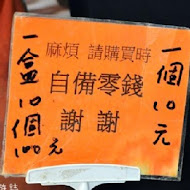 麻煩 請購買時
自備零錢
謝 謝
一個10元
一盒10個100元